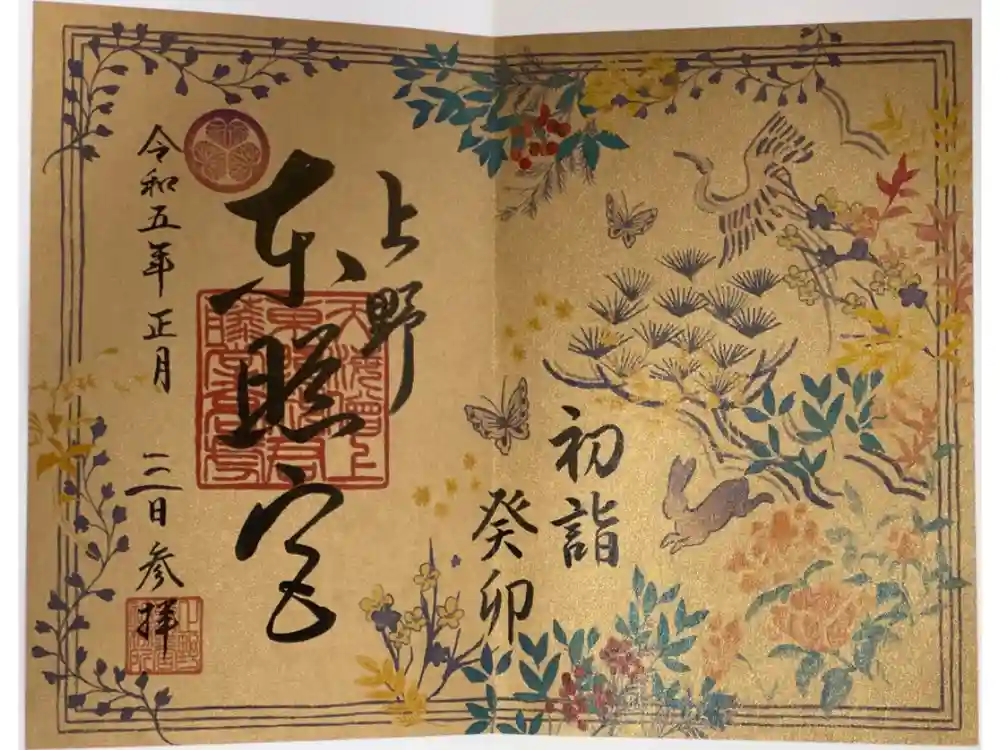 初詣
癸卯
上野
東照宮
令和五年 正月 三日 参拝